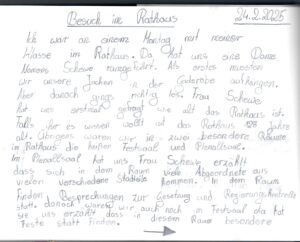 Besuch im Rathaus 24.2.2025
Ich war an einem Montag mit meiner
Klasse im Rathaus. Da hat uns eine Dame
Namens Schewe rumgeführt. Als erstes mussten
wir unsere Jacken in der Gaderobe aufhängen.
Aber danach ging es richtig los. Frau Schewe
hat uns erstmal gefragt wie alt das Rathaus ist.
Falls ihr es wissen wollt ist das Rathaus Jahre
alt. Übrigens waren wir in zwei besondere Räume
im Rathaus die heißen Festsaal und Plenallsaal.
Im Plenallsaal hat uns Frau Schewe erzählt
dass sich in dem Raum viele Abgeordnete aus
vielen verschiedene Stadtteile kommen. In dem Raum
finden Besprechungen zur Gesetzung und Regierungskontrolle
statt. danach waren wir auch noch im Festsaal da hat
sie uns erzählt dass in diesem Raum besondere
Feste statt finden.